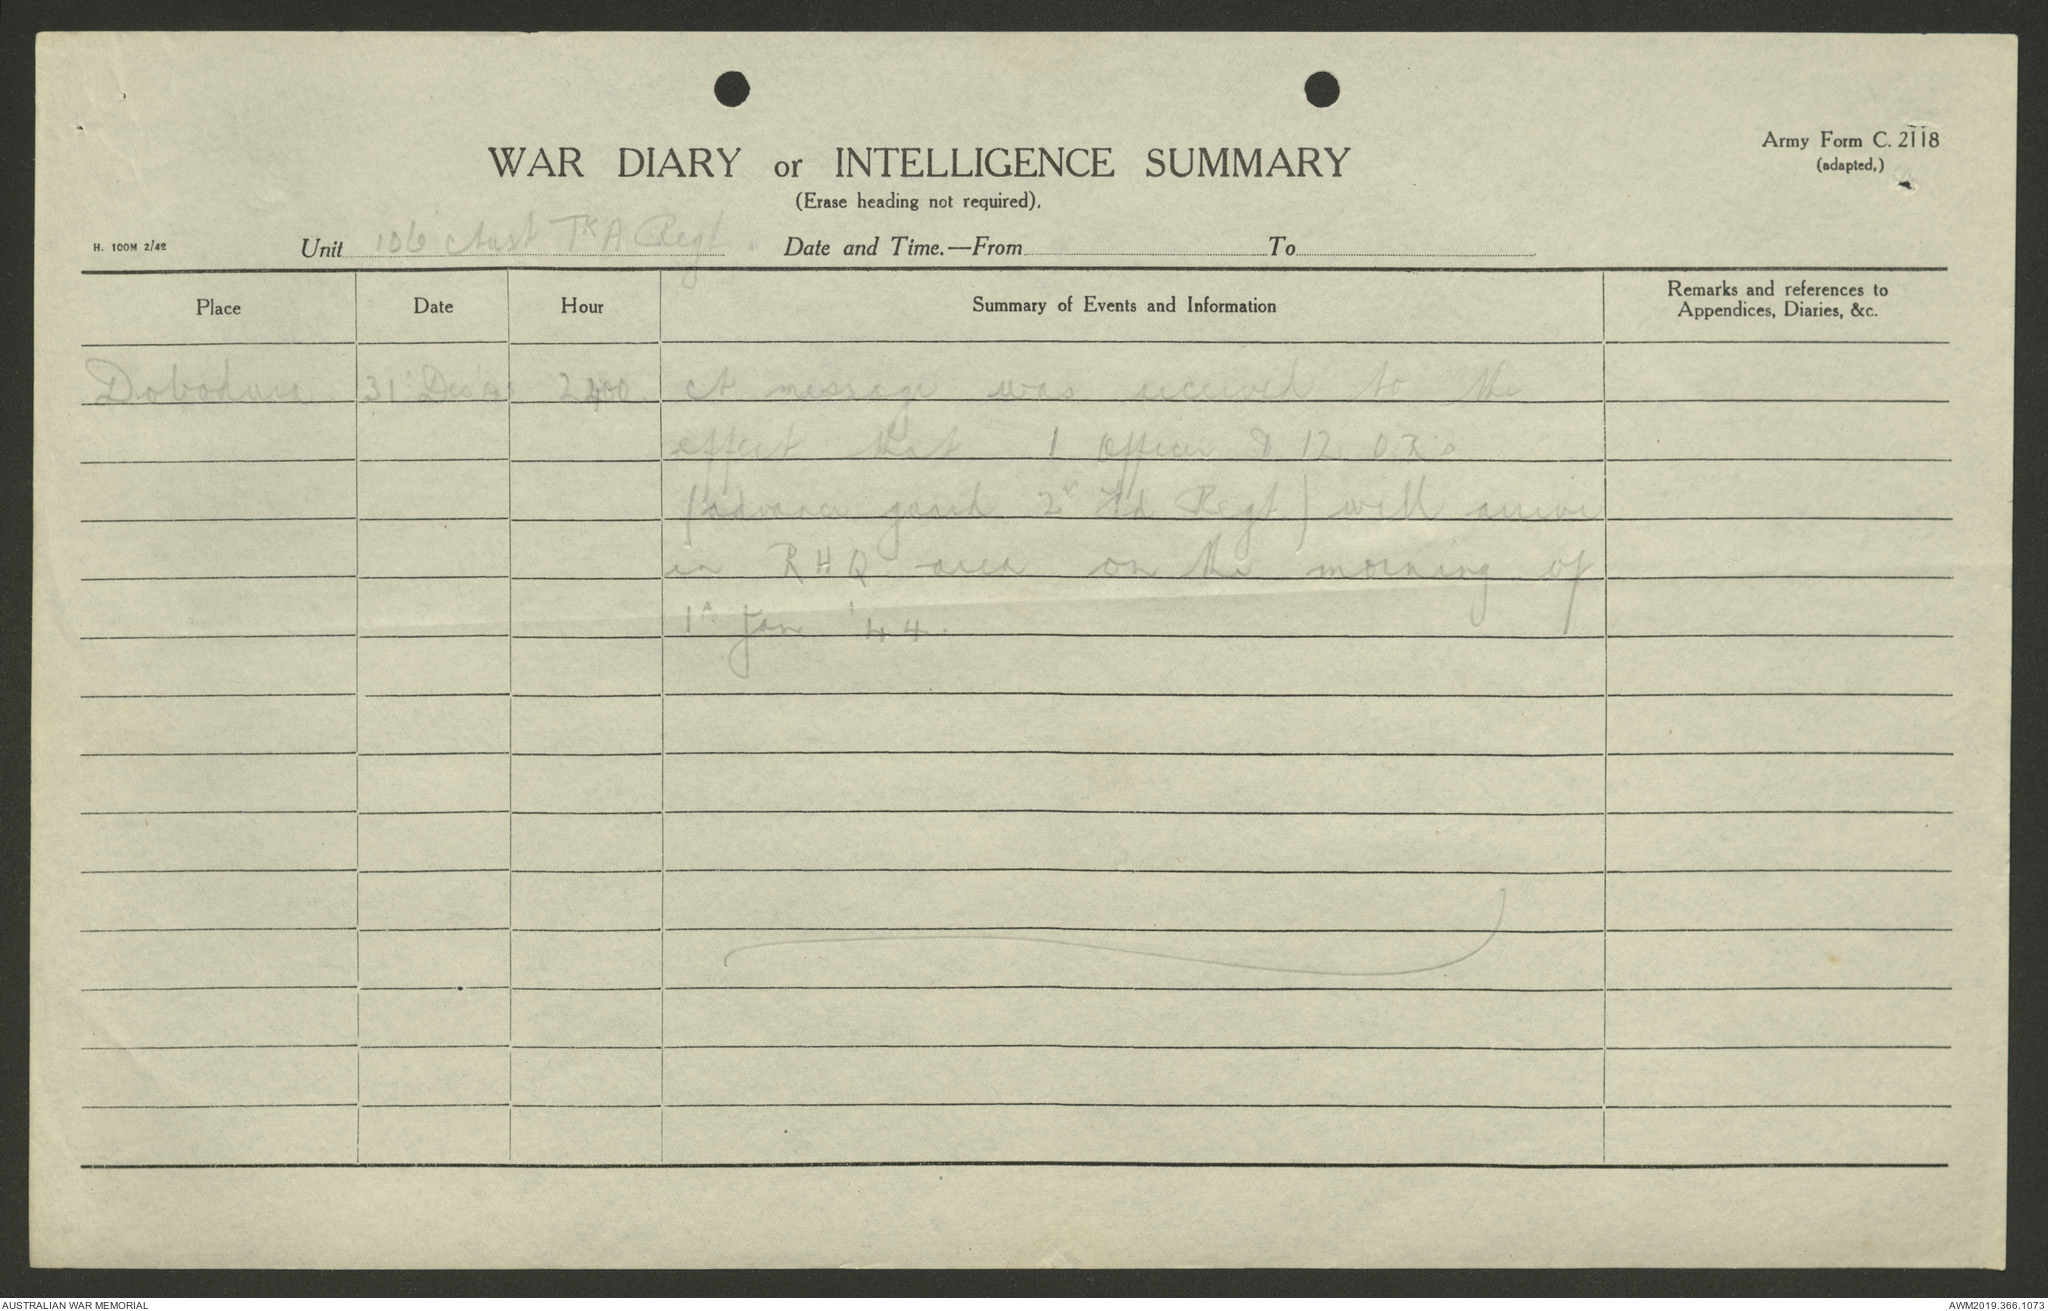 Army Form C. 2118
(adapted,)
WAR DIARY or INTELLIGENCE SUMMARY
(Erase heading not required).
H. 100M 2/42
Unit 106 Aust Tk A Regt. Date and Time.—From To
Place Date Hour Summary of Events and Information Remarks and references to
Appendices, Diaries, &c.
Dobodura 31' Dec 2400 A message was received to the
effect that 1 Officer & 12 ORs
(advance guard 2" Fd Regt) will arrive
in RHQ area on the morning of
1st Jan '44.
AUSTRALIAN WAR MEMORIAL AWM2019.366.1073